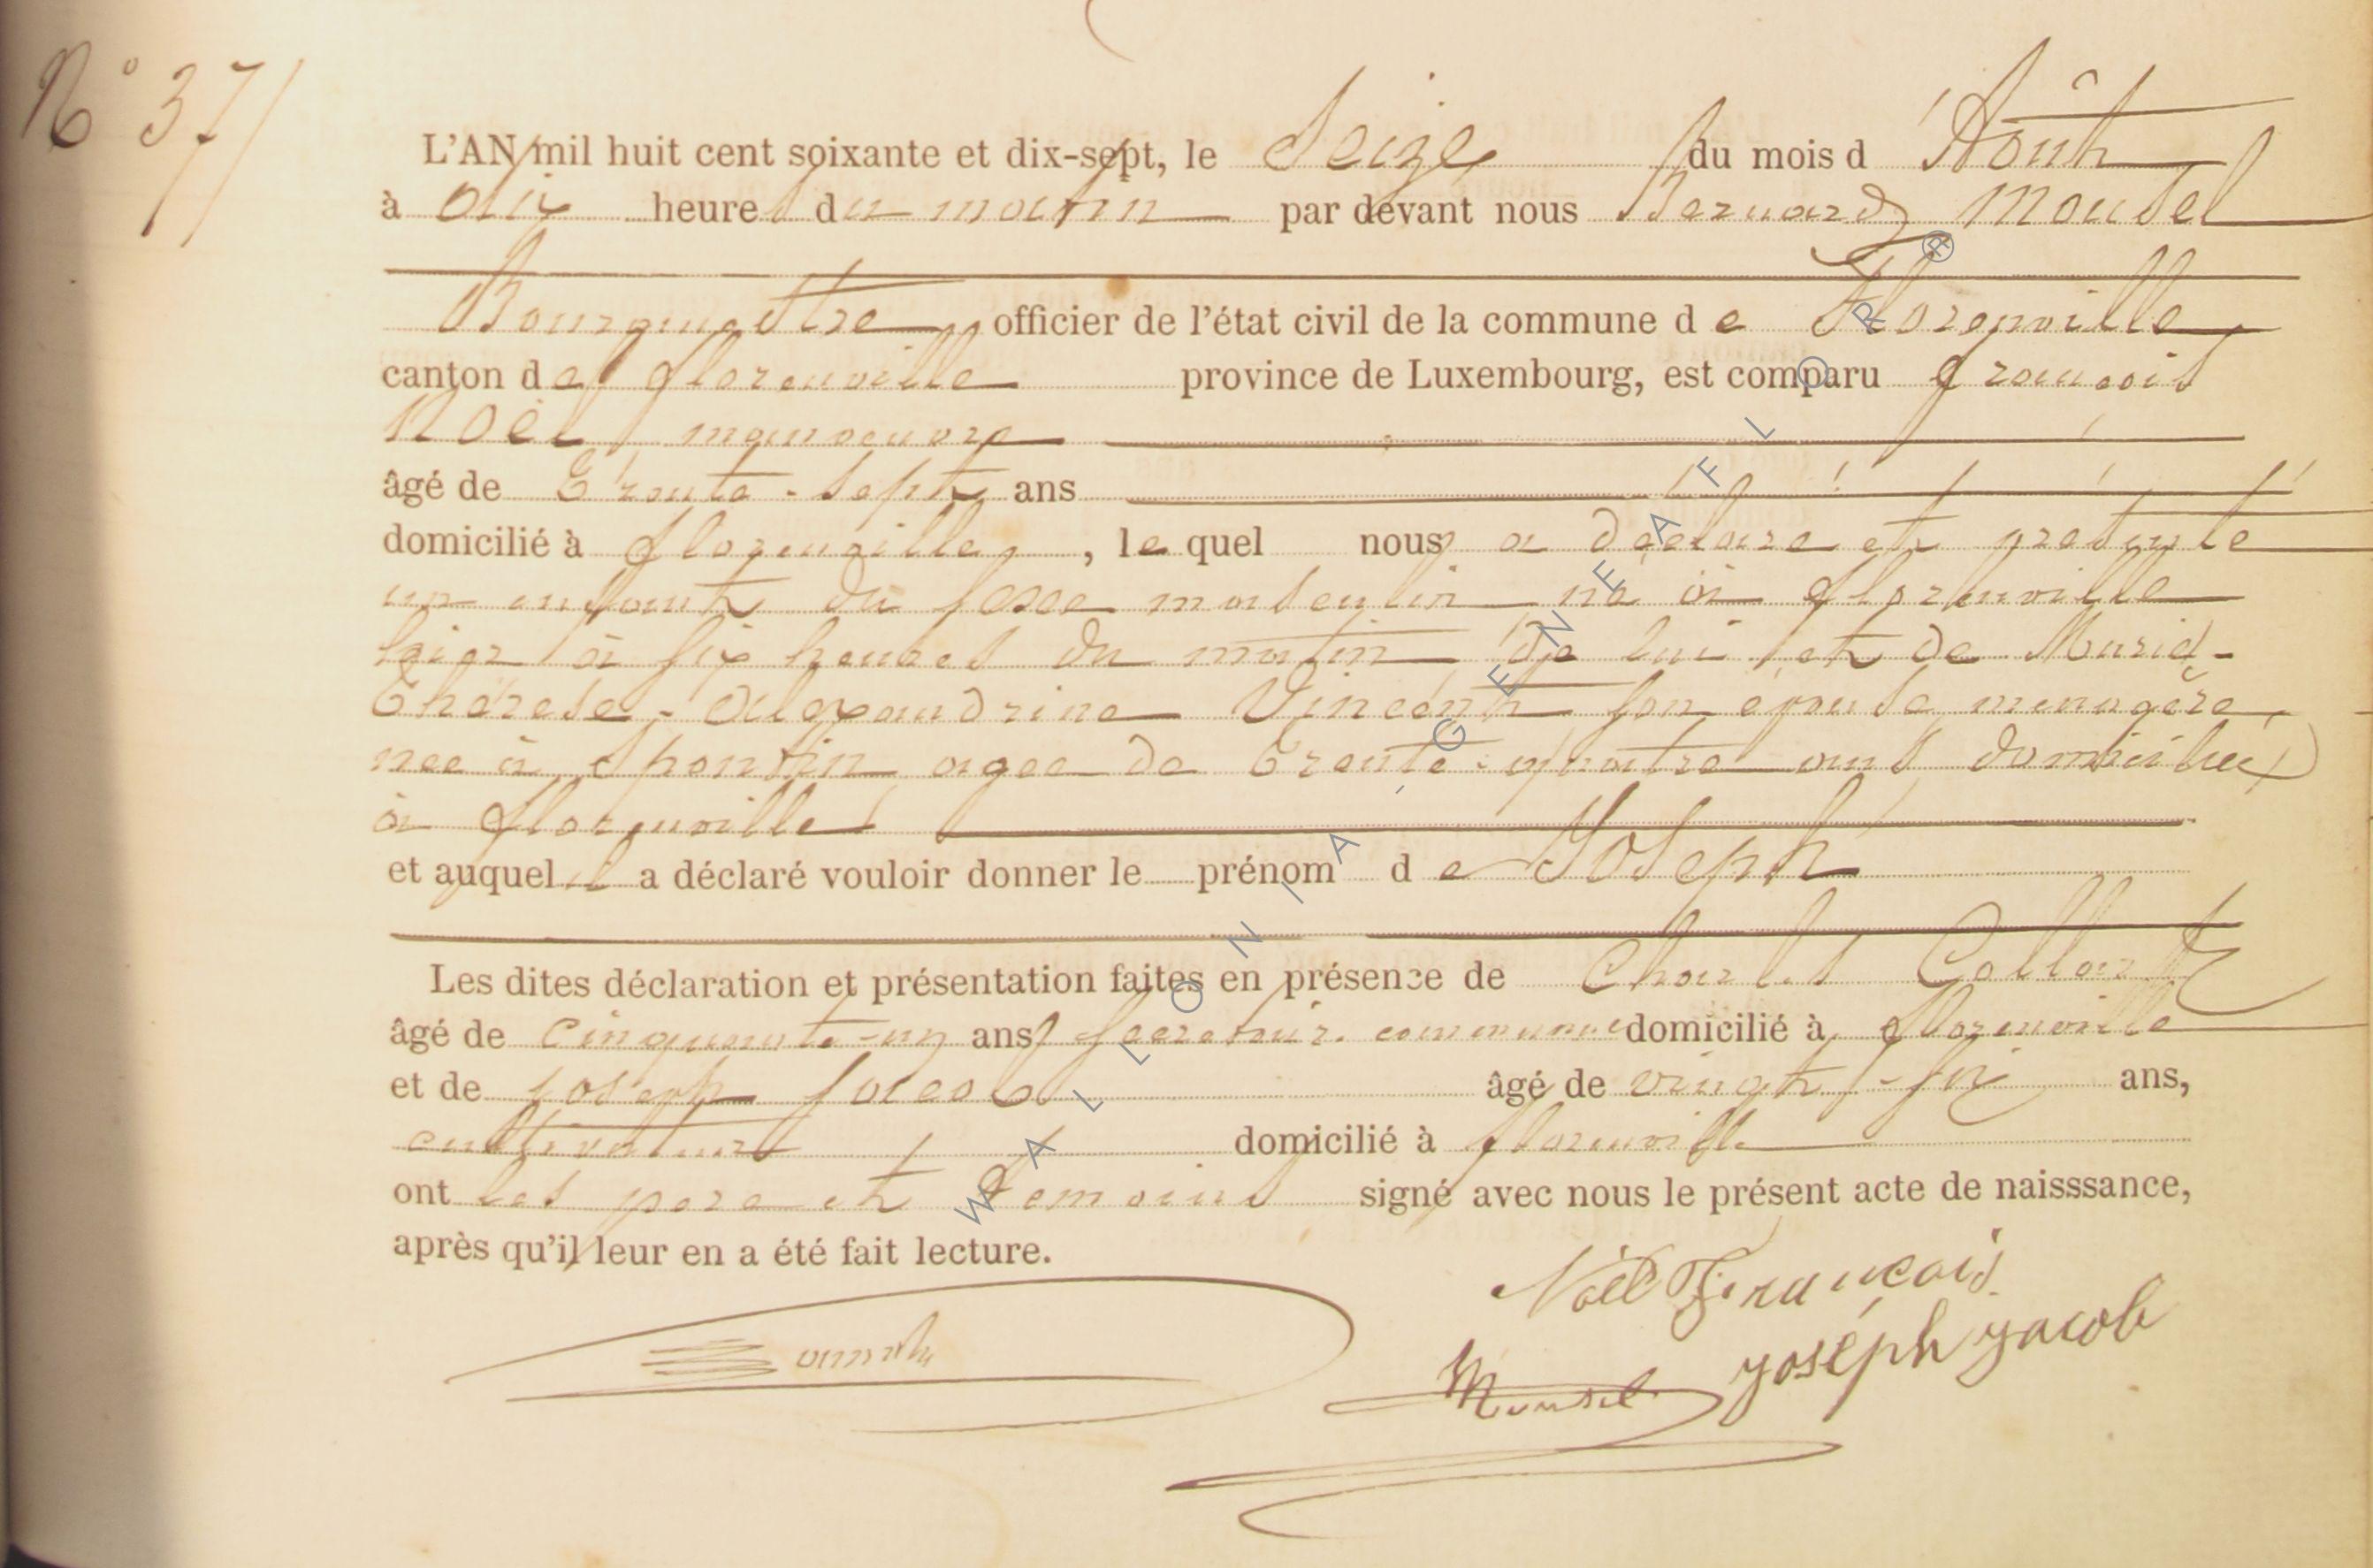 N° 37
L'AN mil huit cent soixante et dix-sept, le Seize du mois d'Août
à dix heures du matin par devant nous Bernard Mousel
Bourgmestre officier de l'état civil de la commune de Florenville
canton de florenville province de Luxembourg, est comparu françois
Noël manoeuvre
âgé de Trente-sept ans
domicilié à florenville, le quel nous a déclaré et présenté
un enfant du sexe masculin né à florenville
hier à six heures du matin de lui et de Marie-
Thérèse-Alexandrine Vincent son épouse, menagère
née à Spontin agée de trente-quatre ans domiciliée
à florenville
et auquel il a déclaré vouloir donner le prénom de Joseph
Les dites déclaration et présentation faites en présence de Charles Collart
âgé de cinquante-un ans secretair. communal domicilié à florenville
et de Joseph Jacob âgé de vingt-six ans,
cultivateur domicilié à florenville
ont les pere et temoins signé avec nous le présent acte de naisssance,
après qu'il leur en a été fait lecture.
Noël François
Mousel Joséph Jacob
WALLONIA, GENEAFFLOR®